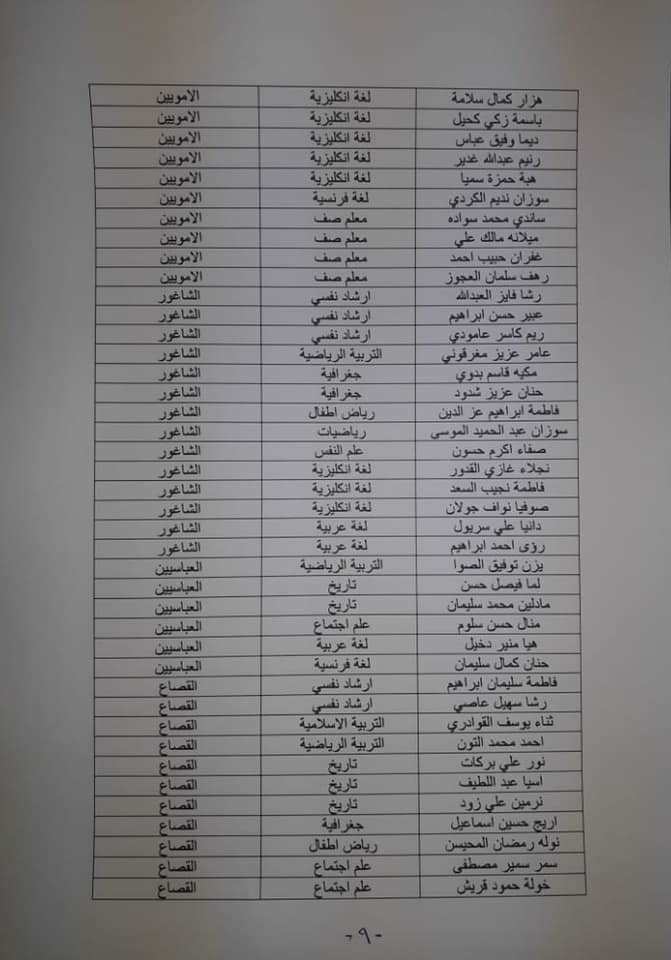 هزار كمال سلامة لغة انكليزية الامويين
باسمة زكي كحيل لغة انكليزية الامويين
ديما وفيق عباس لغة انكليزية الامويين
رنيم عبدالله غدير لغة انكليزية الامويين
هبة حمزة سميا لغة انكليزية الامويين
سوزان نديم الكردي لغة فرنسية الامويين
ساندي محمد سواده معلم صف الامويين
ميلانه مالك علي معلم صف الامويين
غفران حبيب احمد معلم صف الامويين
رهف سلمان العجوز معلم صف الامويين
رشا فايز العبدالله ارشاد نفسي الشاغور
عبير حسن ابراهيم ارشاد نفسي الشاغور
ريم كاسر عامودي ارشاد نفسي الشاغور
عامر عزيز مغرقوني التربية الرياضية الشاغور
مكيه قاسم بدوي جغرافية الشاغور
حنان عزيز شدود جغرافية الشاغور
فاطمة ابراهيم عز الدين رياض اطفال الشاغور
سوزان عبد الحميد الموسى رياضيات الشاغور
صفاء اكرم حسون علم النفس الشاغور
نجلاء غازي القدور لغة انكليزية الشاغور
فاطمة نجيب السعد لغة انكليزية الشاغور
صوفيا نواف جولان لغة انكليزية الشاغور
دانيا علي سريول لغة عربية الشاغور
رؤى احمد ابراهيم لغة عربية الشاغور
يزن توفيق الصوا التربية الرياضية العباسيين
لما فيصل حسن تاريخ العباسيين
مادلين محمد سليمان تاريخ العباسيين
منال حسن سلوم علم اجتماع العباسيين
هيا منير دخيل لغة عربية العباسيين
حنان كمال سليمان لغة فرنسية العباسيين
فاطمة سليمان ابراهيم ارشاد نفسي القصاع
رشا سهيل عاصي ارشاد نفسي القصاع
ثناء يوسف القوادري التربية الاسلامية القصاع
احمد محمد التون التربية الرياضية القصاع
نور علي بركات تاريخ القصاع
اسيا عبد اللطيف تاريخ القصاع
نرمين علي زود تاريخ القصاع
اريج حسين اسماعيل جغرافية القصاع
نوله رمضان المحيسن رياض اطفال القصاع
سمر سمير مصطفى علم اجتماع القصاع
خولة حمود قريش علم اجتماع القصاع
-٩-